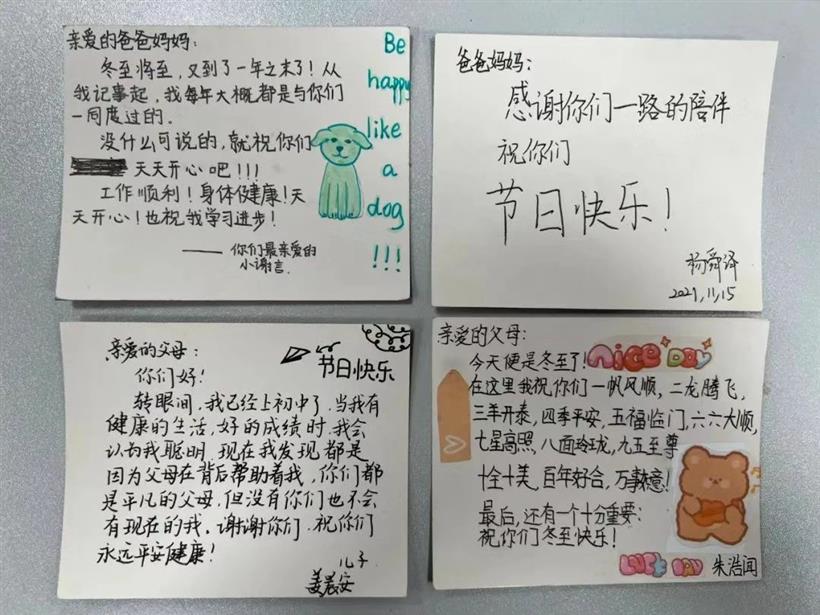 亲爱的爸爸妈妈：
冬至将至，又到了一年之末了！从
我记事起，我每年大概都是与你们
一同度过的。
没什么可说的，就祝你们
天天开心吧！！！
工作顺利！身体健康！天
天开心！也祝我学习进步！
——你们最亲爱的
小谢言
Be
happy
like
a
dog
!!!
爸爸妈妈：
感谢你们一路的陪伴
祝你们
节日快乐！
杨舜泽
2021,11,15
亲爱的父母：
节日快乐
你们好！
转眼间，我已经上初中了，当我有
健康的生活，好的成绩时，我会
认为我聪明，现在我发现都是
因为父母在背后帮助着我，你们都
是平凡的父母，但没有你们也不会
有现在的我，谢谢你们，祝你们
永远平安健康！
儿子
姜晨安
亲爱的父母：
今天便是冬至了！
NICE DAY
在这里我祝你们一帆风顺，二龙腾飞，
三羊开泰，四季平安，五福临门，六六大顺，
七星高照，八面玲珑，九五至尊
十全十美，百年好合，万事如意！
最后，还有一个十分重要：
祝你们冬至快乐！
LUCK DAY
朱浩闻